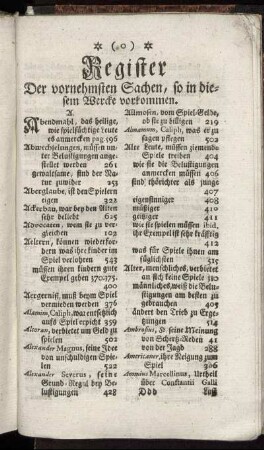 ✲ (o) ✲
Register
Der vornehmsten Sachen, so in die-
sem Wercke vorkommen.
A.
Abendmahl, das heilige,
wie spielsüchtige leute
es anmercken pag 596
Abwechselungen, müssen un-
ter Belustigungen ange-
stellet werden 261
gewaltsame, sind der Na-
tur zuwider 253
Aberglaube, ist den Spielern
eigen 323
Ackerbau, war bey den Alten
sehr beliebt 625
Advocaten, wem sie zu ver-
gleichen 630
Aeltern, können wiederfor-
dern was ihre kinder im
Spiel verlohren 543
müssen ihren kindern gute
Exempel geben 370. 375.
400
Aergerniß, muß beym Spiel
vermieden werden 376
Alamin, Caliph, war entsetzlich
aufs Spiel erpicht 359
Alcoran, verbietet um Geld zu
spielen 502
Alexander Magnus, seine Idee
von unschuldigen Spie-
len 522
Alexander Severus, seine
Grund-Regul bey Be-
lustigungen 428
Allmosen, vom Spiel-Gelde,
ob sie zu billigen 219
Almamum, Caliph, was er zu
sagen pflegen 502
Alte Leute, müssen ziemende
Spiele treiben 404
wie sie die Belustigungen
anwercken müssen 406
sind thörichter als junge
407
eigensinniger 408
müßiger 410
geitziger 411
wie sie spielen müssen ibid.
ihr Exempel ist sehr kräfftig
412
was für Spiele ihnen am
füglichsten 515
Alter, menschliches, verbietet
an sich keine Spiele 380
männliches, weiß die Belu-
stigungen am besten zu
gebrauchen 402
ändert den Trieb zu Erge-
tzungen 514
Ambrosius, St. seine Meinung
von Schertz-Reden 41
von der Jagd 288
Americaner, ihre Neigung zum
Spiel 306
Ammian Marcellinus, Urtheil
über Constantii Galli
Ddd Lust